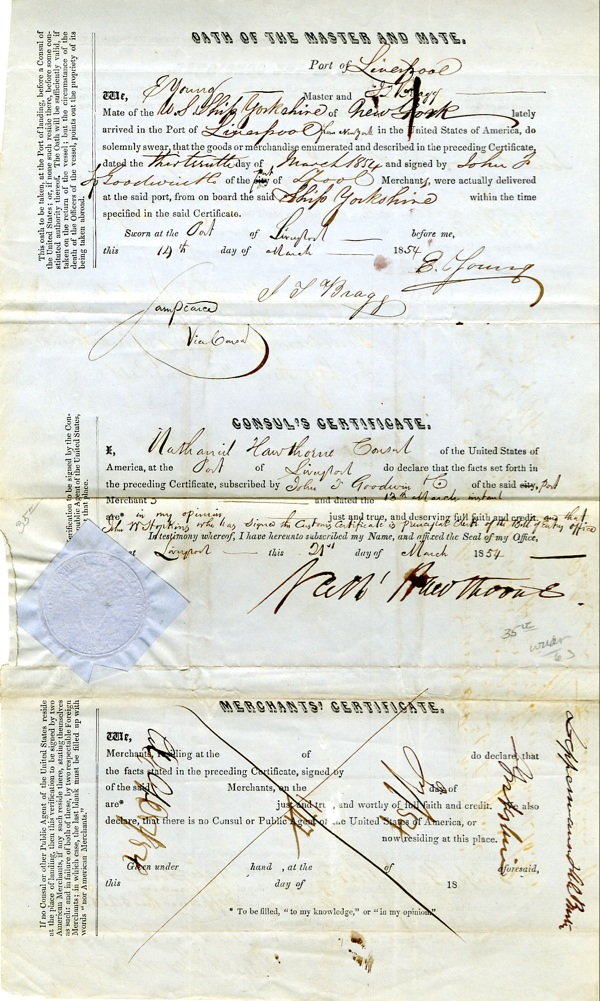 OATH OF THE MASTER AND MATE.
Port of Liverpool
We, E Young Master and
Mate of the U.S. Ship Yorkshire of New York lately
arrived in the Port of Liverpool from New York in the United States of America, do
solemnly swear, that the goods or merchandise enumerated and described in the preceding Certificate,
dated the thirteenth day of March 1854 and signed by John F
Goodwin & Co of the city Port of L'pool Merchants, were actually delivered
at the said port, from on board the said Ship Yorkshire within the time
specified in the said Certificate.
Sworn at the Port of Liverpool before me,
this 14th day of March 1854
E. Young
J T Bragg
Sam Pearce
Vice Consul
This oath to be taken, at the Port of landing, before a Consul of
the United States; or, if none such reside there, before some con-
stituted authority thereof. The Oath will be sufficiently valid, if
taken on the return of the vessel; but the circumstance of the
death of the Officers of the vessel, points out the propriety of its
being taken abroad.
CONSUL'S CERTIFICATE.
I, Nathaniel Hawthorne Consul of the United States of
America, at the Port of Liverpool do declare that the facts set forth in
the preceding Certificate, subscribed by John F Goodwin & Co of the said city, Port
Merchants and dated the 13th March instant
are* in my opinion just and true, and deserving full faith and credit. and that
John W Hopkins who has signed the Customs Certificate is principal Clerk of the Bill of Entry office
In testimony whereof, I have hereunto subscribed my Name, and affixed the Seal of my Office,
at Liverpool this 21st day of March 1854
Nath' Hawthorne.
ertification to be signed by the Con-
public Agent of the United States,
that place.
35.00
35.00
63
MERCHANTS' CERTIFICATE.
We,
Merchants, residing at the of do declare, that
the facts stated in the preceding Certificate, signed by
of the said Merchants, on the day of
are* just and true, and worthy of full faith and credit. We also
declare, that there is no Consul or Public Agent of the United States of America, or
now residing at this place.
Given under hand , at the of aforesaid,
this day of 18
* To be filled, "to my knowledge," or "in my opinion."
If no Consul or other Public Agent of the United States reside
at the place of landing, then this verification to be signed by two
American Merchants, if any such reside there, stating themselves
as such: and in failure of both of these, by two respectable Foreign
Merchants; in which case, the last blank must be filled up with
words "nor American Merchants."
Yorkshire